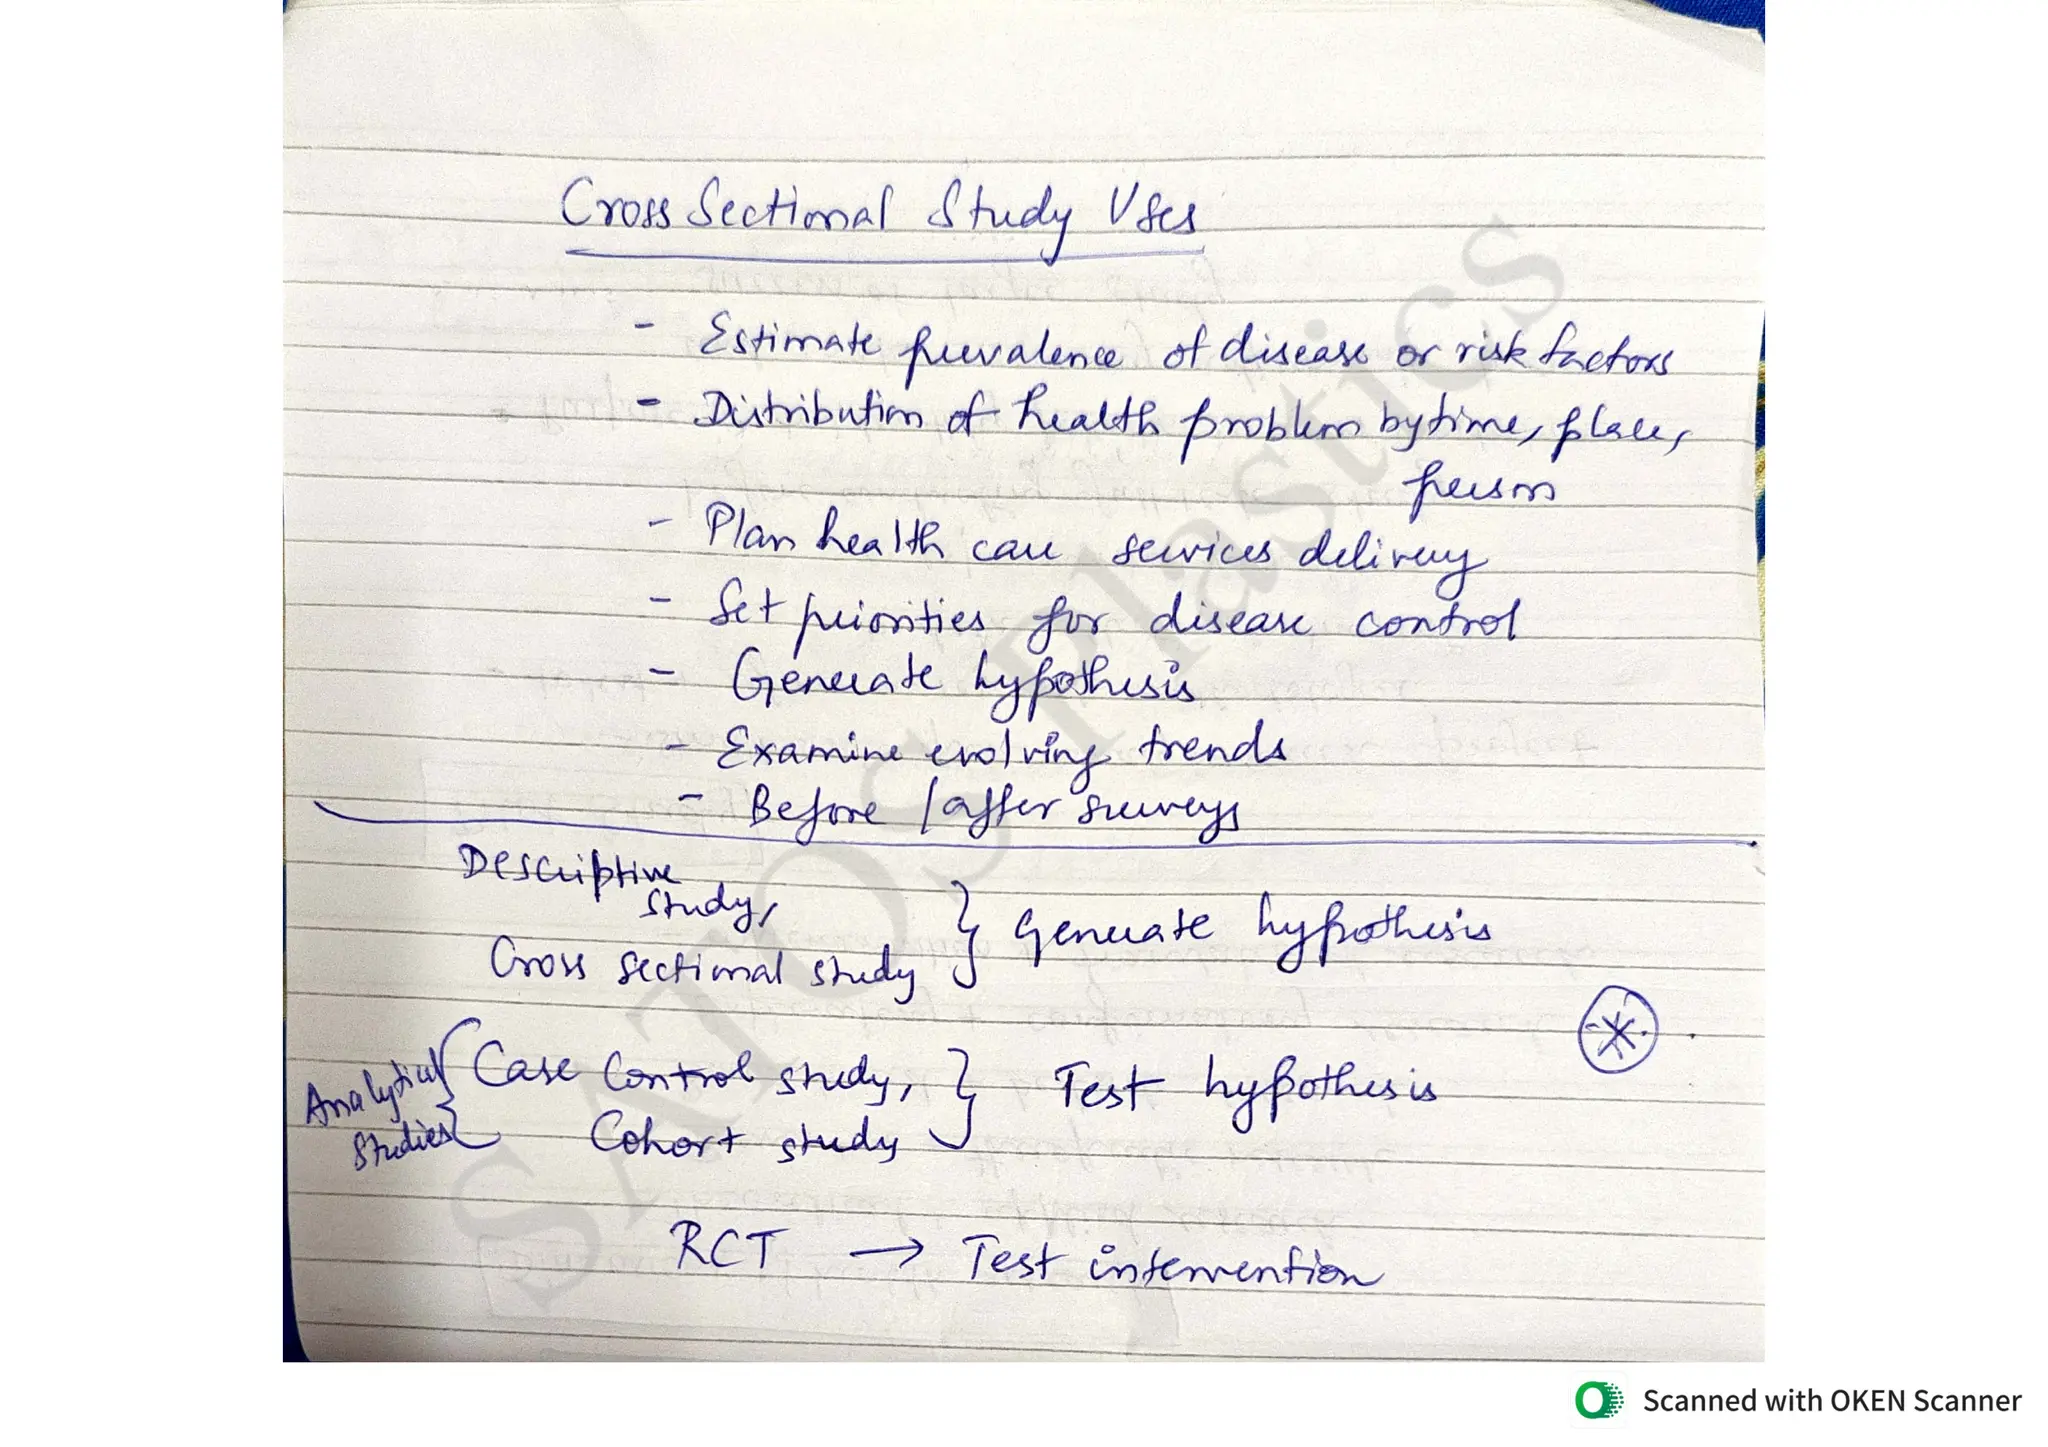 Cross Sectional Study Uses
- Estimate prevalence of disease or risk factors
- Distribution of health problem by time, place,
person
- Plan health care services delivery
- Set priorities for disease control
- Generate hypothesis
- Examine evolving trends
- Before / after surveys
Descriptive
study,
Cross sectional study } Generate hypothesis
Analytical
Studies { Case Control study,
Cohort study } Test hypothesis
RCT → Test intervention
SATOS Plastics
Scanned with OKEN Scanner